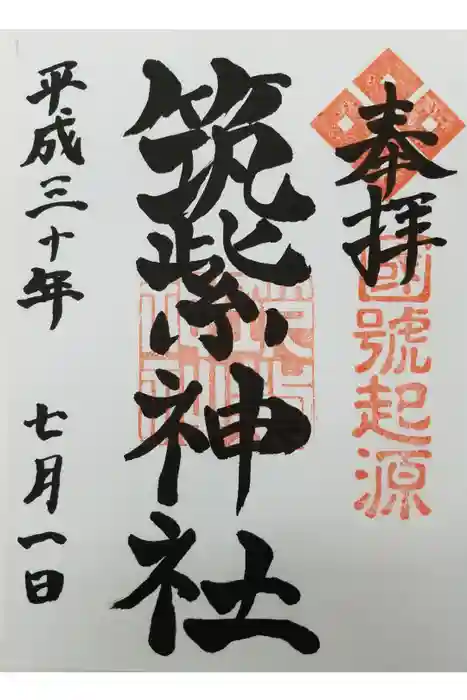 奉拝
國號起源
筑紫神社
平成三十年 七月一日